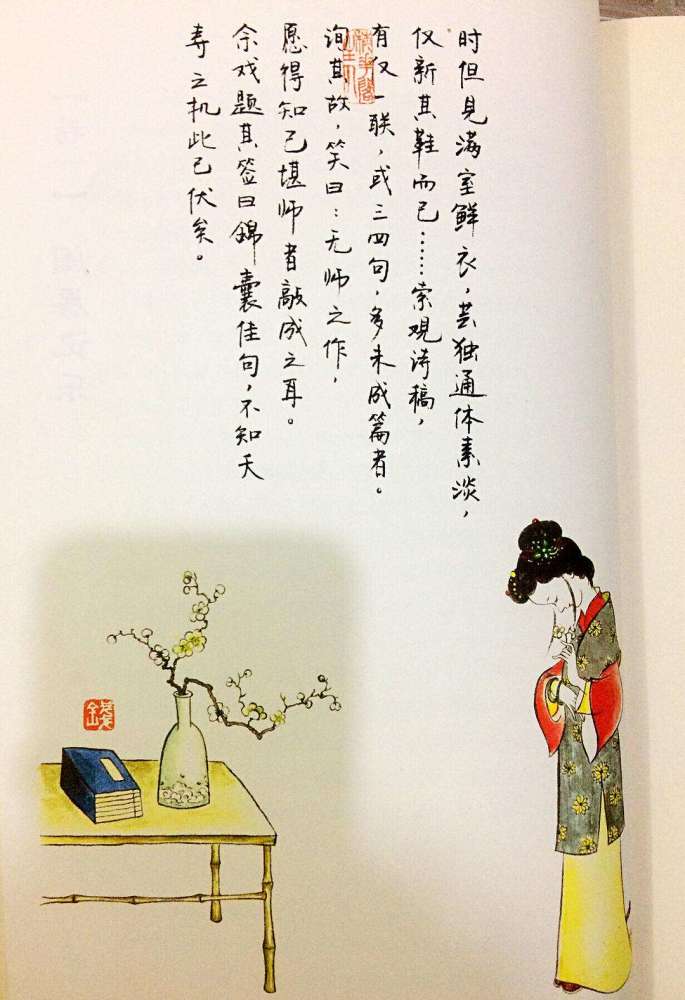 时但见满室鲜衣，芸独通体素淡，
仅新其鞋而已……索观诗稿，
有仅一联，或三四句，多未成篇者。
询其故，笑曰：无师之作，
愿得知己堪师者敲成之耳。
余戏题其签曰錦囊佳句，不知夭
寿之机此已伏矣。